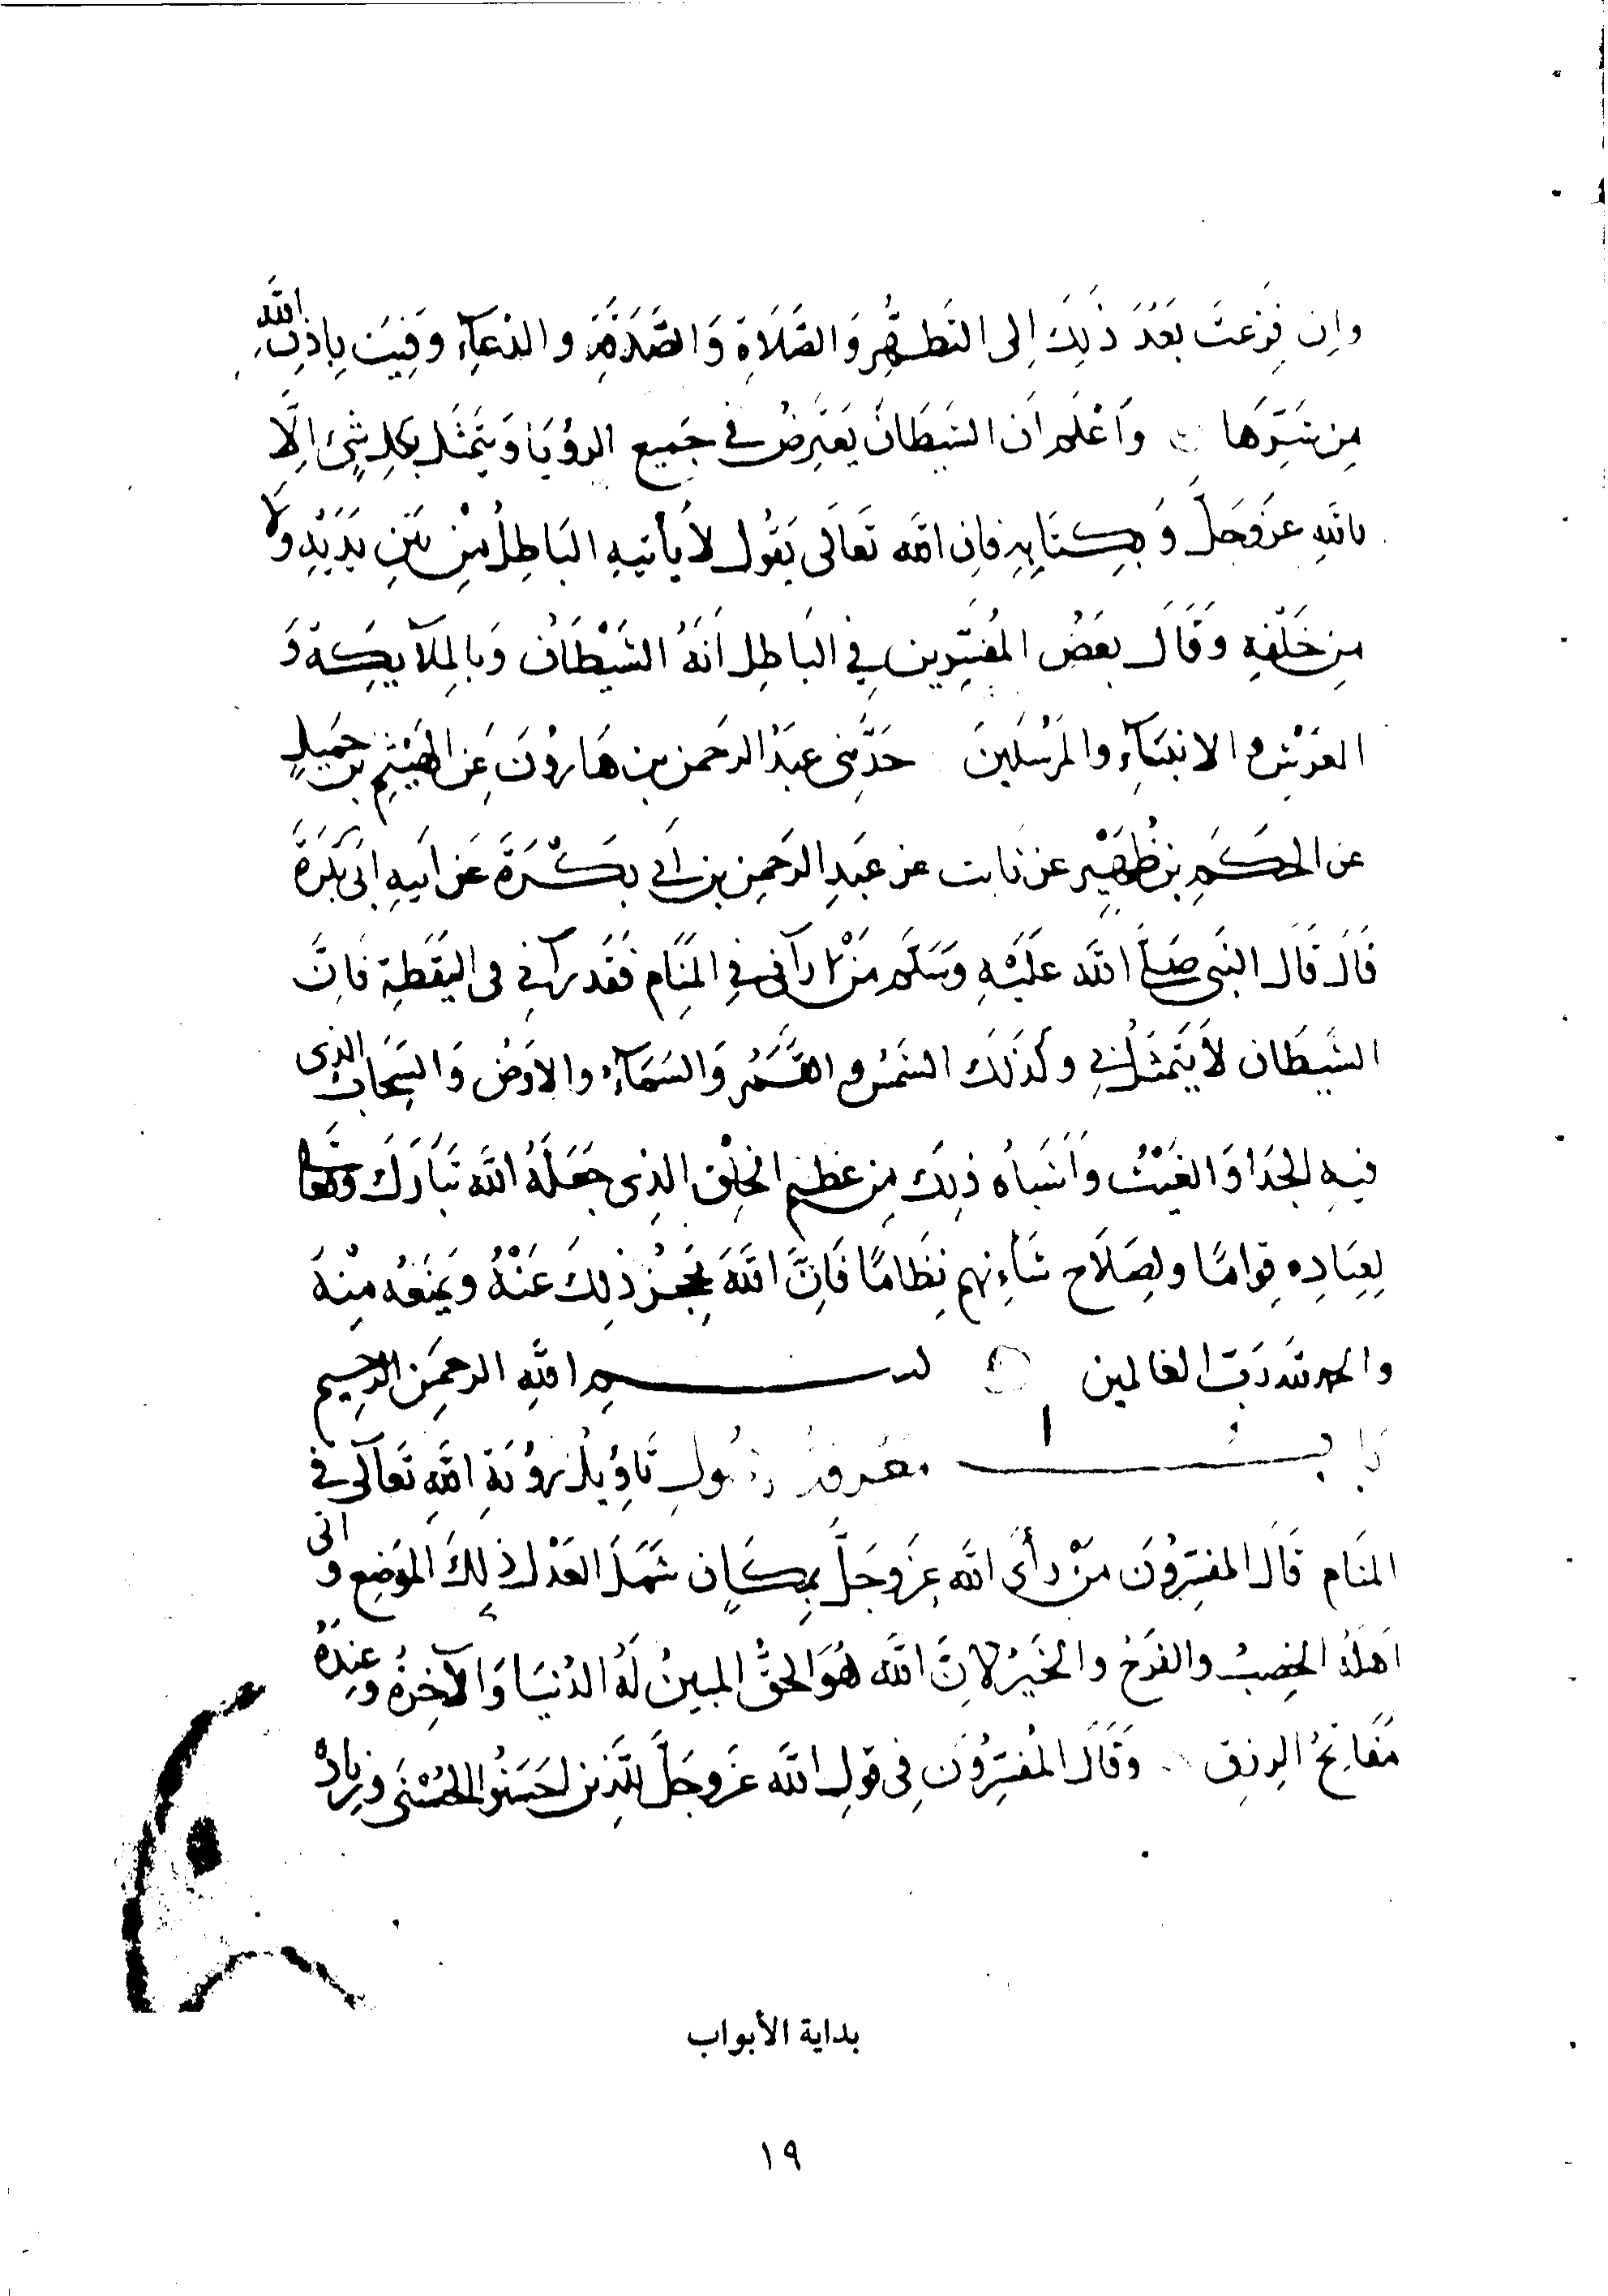 وإن فزعت بَعْدَ ذَلِكَ إلى التَطَهُّرِ وَالصَّلَاةِ وَالصَّدَقَةِ والدُّعَآءِ وُقِيتَ بِإذنِ اللَّهِ
مِن شَرِّهَا وَاعْلَم أن الشَيطَانَ يَعْتَرِضُ في جَميع الرؤيَا وَيَتَمثَّل بكلِ شَيْءٍ إلَّا
باللهِ عَزَّ وَجَلَّ وَبِكِتَابِهِ فإن الله تَعَالَى يَقُول لاَ يَأتيهِ البَاطِلُ مِنْ بَيْنِ يَدَيْهِ وَلا
مِن خَلْفِهِ وَقَالَ بَعْضُ المُفَسِّرِين في البَاطِل أنَّهُ الشَّيْطَانُ وَبالملآئِكَةِ وَ
العَرْشِ والانبيَآءِ والمُرسَلينَ حَدَّثَنِي عَبْدُ الرحمن بن هَارُونَ عَنِ الهَيْثَمِ بن جَميلٍ
عن الحَكَمِ بن ظُهَيْرٍ عن ثابت عن عَبدِ الرحمن بن أبي بَكْرَةَ عَن أبيهِ أبي بَكْرَةَ
قَالَ قَالَ النبي صَلَّى اللَّه عَلَيْهِ وَسَلَّم مَنْ رآني في المَنَام فَقَد رآني في اليَقَظَةِ فَإنَّ
الشَّيطَان لاَ يَتَمثَّلُ بي وكذَلك الشمسُ والقَمَرُ وَالسَمَآءُ والأرضُ وَالسَّحَاب الذي
فيه الحَدَا وَالغَيْثُ وَأشبَاه ذلِكَ مِن عَظيم الخلق الذِي جَعَلَهُ الله تَبَارَكَ وَتَعَا
لِعِبَادِه قِوامًا ولِصَلَاح شَأنِهم نِظَامًا فَإنَّ اللَّهَ يَحْجُزُ ذلكَ عَنْهُ وَيَمنَعُه مِنْهُ
والحمد لله رَبِّ العَالمين بسم اللهِ الرحمَن الرحِيم
باب معرفة أصُولِ تَأوِيلِ رُؤيَةِ اللَّهِ تَعَالَى في
المَنَام قَالَ المفسِّرُونَ مَنْ رَأى الله عَزَّ وَجَلَّ بِمكَانٍ شَمَلَ العَدْل ذلِكَ المَوضِع وأتى
أهلَهُ الخِصبُ والفَرَجُ والخَيْرُ لانَّ اللَّه هُوَ الحَقُّ المبينُ لَهُ الدُنيَا وَالآخِرَةُ وعِندَهُ
مَفَاتِحُ الرِزقِ وَقَالَ المُفسِّرُونَ فِي قَولِ اللَّه عَزَّ وَجَلَّ للَّذِين أحسَنُوا الحُسْنَى وَزِيادَة
بداية الأبواب
١٩